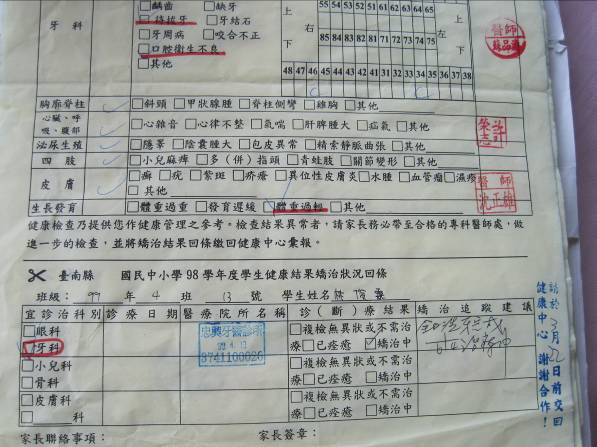 齲齒 缺牙
牙科
待拔牙 牙結石
牙周病 咬合不正
口腔衛生不良
其他
上 下 右 上 左 下
55 54 53 52 51 61 62 63 64 65
85 84 83 82 81 71 72 73 74 75
48 47 46 45 44 43 42 41 31 32 33 34 35 36 37 38
醫師
胸廓脊柱 斜頸 甲狀腺腫 脊柱側彎 雞胸 其他
心臟、呼吸、腹部 心雜音 心律不整 氣喘 肝脾腫大 疝氣 其他
泌尿生殖 隱睪 陰囊腫大 包皮異常 精索靜脈曲張 其他
四肢 小兒麻痺 多(併)指頭 青蛙肢 關節變形 其他
皮膚 癬 疣 紫斑 疥瘡 異位性皮膚炎 水腫 血管瘤 濕疹
其他
醫師 沈正雄
生長發育 體重過重 發育遲緩 體重過輕 其他
健康檢查乃提供您作健康管理之參考。檢查結果異常者,請家長務必帶至合格的專科醫師處,做
進一步的檢查,並將矯治結果回條繳回健康中心彙報。
臺南縣 國民中小學98學年度學生健康結果矯治狀況回條
班級:99年4班13號 學生姓名
宜診治科別 診療日期 醫療院所名稱 診(斷)療結果 矯治追蹤建議
眼科 複檢無異狀或不需治
牙科 療 已痊癒 矯治中
忠興牙醫診所
99.4.13
3741100026
小兒科 複檢無異狀或不需治
骨科 療 已痊癒 矯治中
皮膚科 複檢無異狀或不需治
科 療 已痊癒 矯治中
請於3月22日前交回
健康中心 謝謝合作!
家長聯絡事項: 家長簽章: